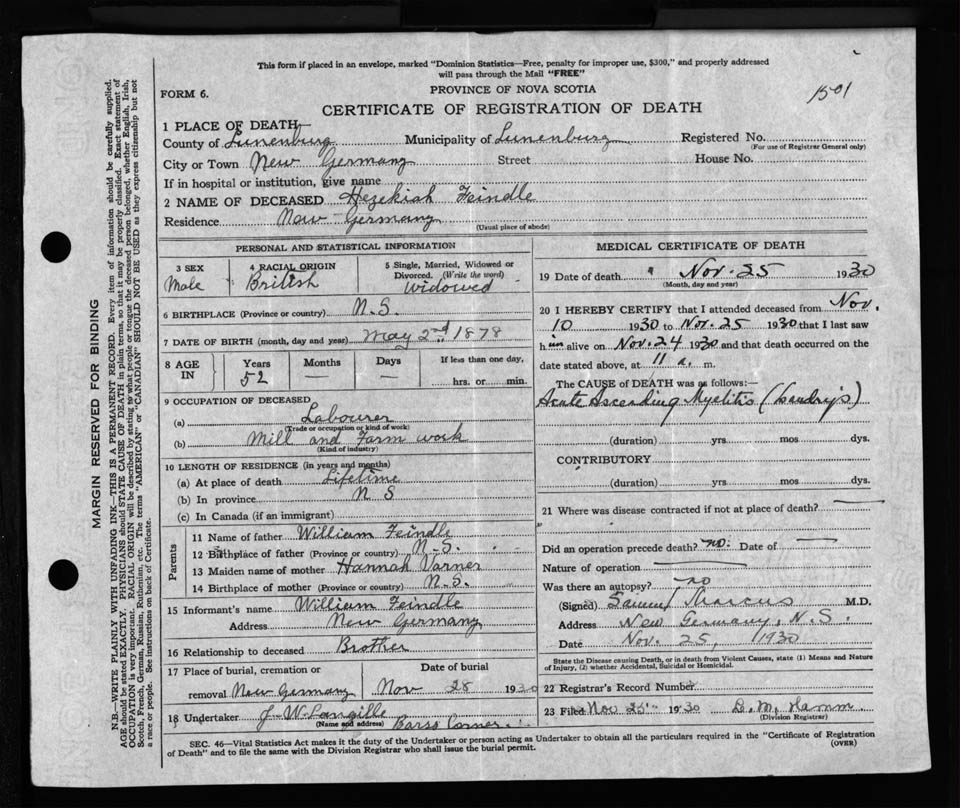 This form if placed in an envelope, marked "Dominion Statistics—Free, penalty for improper use, $300," and properly addressed
will pass through the Mail "FREE"
1501
FORM 6.
PROVINCE OF NOVA SCOTIA
CERTIFICATE OF REGISTRATION OF DEATH
1 PLACE OF DEATH—
County of Lunenburg Municipality of Lunenburg Registered No.
(For use of Registrar General only)
City or Town New Germany Street House No.
If in hospital or institution, give name
2 NAME OF DECEASED Hezekiah Feindle
Residence New Germany
(Usual place of abode)
PERSONAL AND STATISTICAL INFORMATION
3 SEX 4 RACIAL ORIGIN 5 Single, Married, Widowed or
Divorced. (Write the word)
Male British widowed
6 BIRTHPLACE (Province or country) N.S.
7 DATE OF BIRTH (month, day and year) May 2nd 1878
8 AGE IN Years Months Days If less than one day,
52 — — hrs. or min.
9 OCCUPATION OF DECEASED
(a) Labourer
(Trade or occupation or kind of work)
(b) Mill and Farm work
(Kind of industry)
10 LENGTH OF RESIDENCE (in years and months)
(a) At place of death Lifetime
(b) In province N S
(c) In Canada (if an immigrant)
Parents
11 Name of father William Feindle
12 Birthplace of father (Province or country) N.S.
13 Maiden name of mother Hannah Varner
14 Birthplace of mother (Province or country) N.S.
15 Informant's name William Feindle
Address New Germany
16 Relationship to deceased Brother
17 Place of burial, cremation or removal Date of burial
New Germany Nov 28 1930
18 Undertaker J. W. Langille Barss Corner
(Name and address)
MEDICAL CERTIFICATE OF DEATH
19 Date of death Nov. 25 1930
(Month, day and year)
20 I HEREBY CERTIFY that I attended deceased from Nov.
10 1930 to Nov. 25 1930 that I last saw
him alive on Nov. 24 1930 and that death occurred on the
date stated above, at 11 a. m.
The CAUSE of DEATH was as follows:—
Acute Ascending Myelitis (Landry's)
(duration) yrs mos dys.
CONTRIBUTORY
(duration) yrs. mos. dys.
21 Where was disease contracted if not at place of death? —
Did an operation precede death? no. Date of —
Nature of operation —
Was there an autopsy? no
(Signed) Samuel Marcus M.D.
Address New Germany, N.S.
Date Nov. 25, 1930
State the Disease causing Death, or in death from Violent Causes, state (1) Means and Nature
of Injury, (2) whether Accidental, Suicidal or Homicidal.
22 Registrar's Record Number
23 Filed Nov 25 1930 D. M. Hamm
(Division Registrar)
SEC. 46—Vital Statistics Act makes it the duty of the Undertaker or person acting as Undertaker to obtain all the particulars required in the "Certificate of Registration
of Death" and to file the same with the Division Registrar who shall issue the burial permit.
(OVER)
MARGIN RESERVED FOR BINDING
N.B.—WRITE PLAINLY WITH UNFADING INK—THIS IS A PERMANENT RECORD. Every item of information should be carefully supplied.
AGE should be stated EXACTLY. PHYSICIANS should STATE CAUSE OF DEATH in plain terms, so that it may be properly classified. Exact statement of
OCCUPATION is very important. RACIAL ORIGIN will be described by stating to what people or tongue the deceased person belonged, whether English, Irish,
Scotch, French, German, Russian, Ruthenian, etc. The terms "AMERICAN" or "CANADIAN" SHOULD NOT BE USED as they express citizenship but not
a race or people. See instructions on back of Certificate.